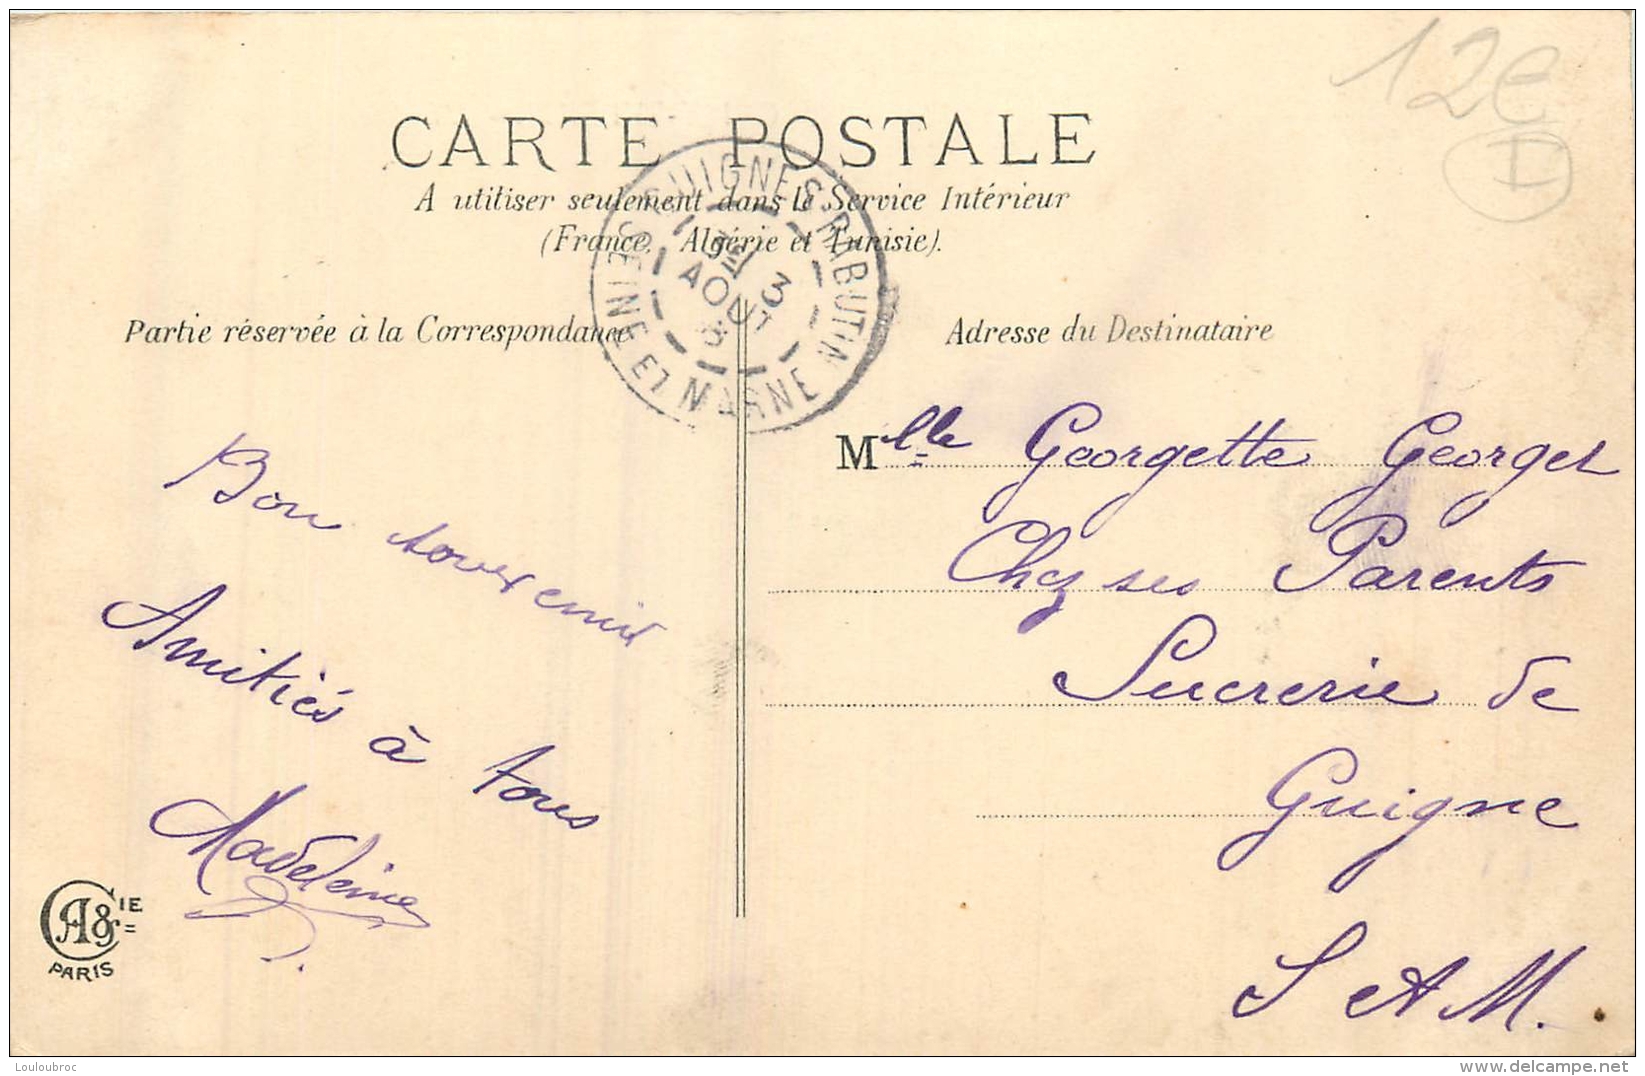 12e
I
CARTE POSTALE
A utiliser seulement dans le Service Intérieur
(France, Algérie et Tunisie).
GUIGNES-RABUTIN
3
AOUT
SEINE ET MARNE
Partie réservée à la Correspondance
Adresse du Destinataire
Bon souvenir
Amitiés à tous
Madeleine
Mlle Georgette Georget
Chez ses Parents
Sucrerie de
Guigne
S et M.
CA & IE
PARIS
Louloubroc
www.delcampe.net